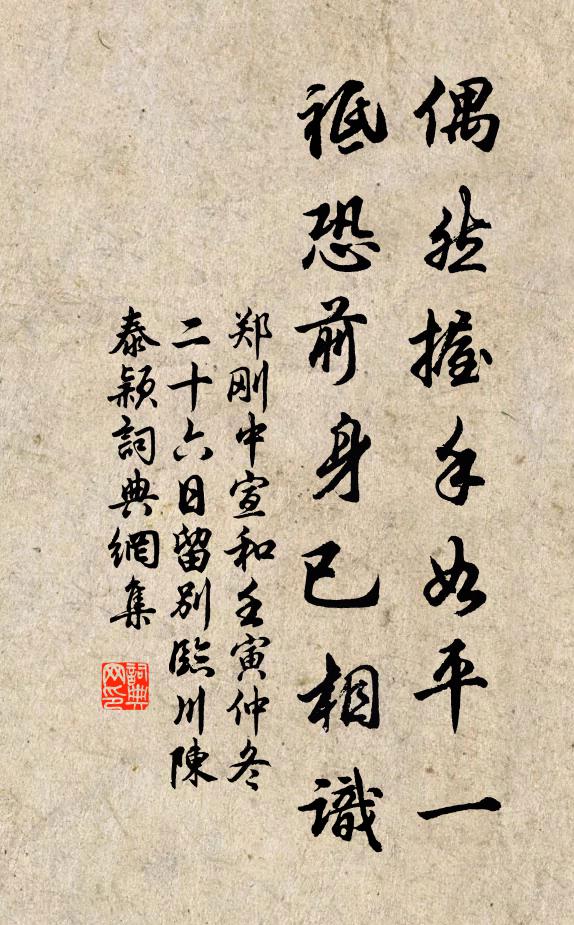 偶然握手如平一
祗恐前身已相識
郑刚中宣和壬寅仲冬
二十六日留别臨川陳
泰颖詞典網集
詞典网印